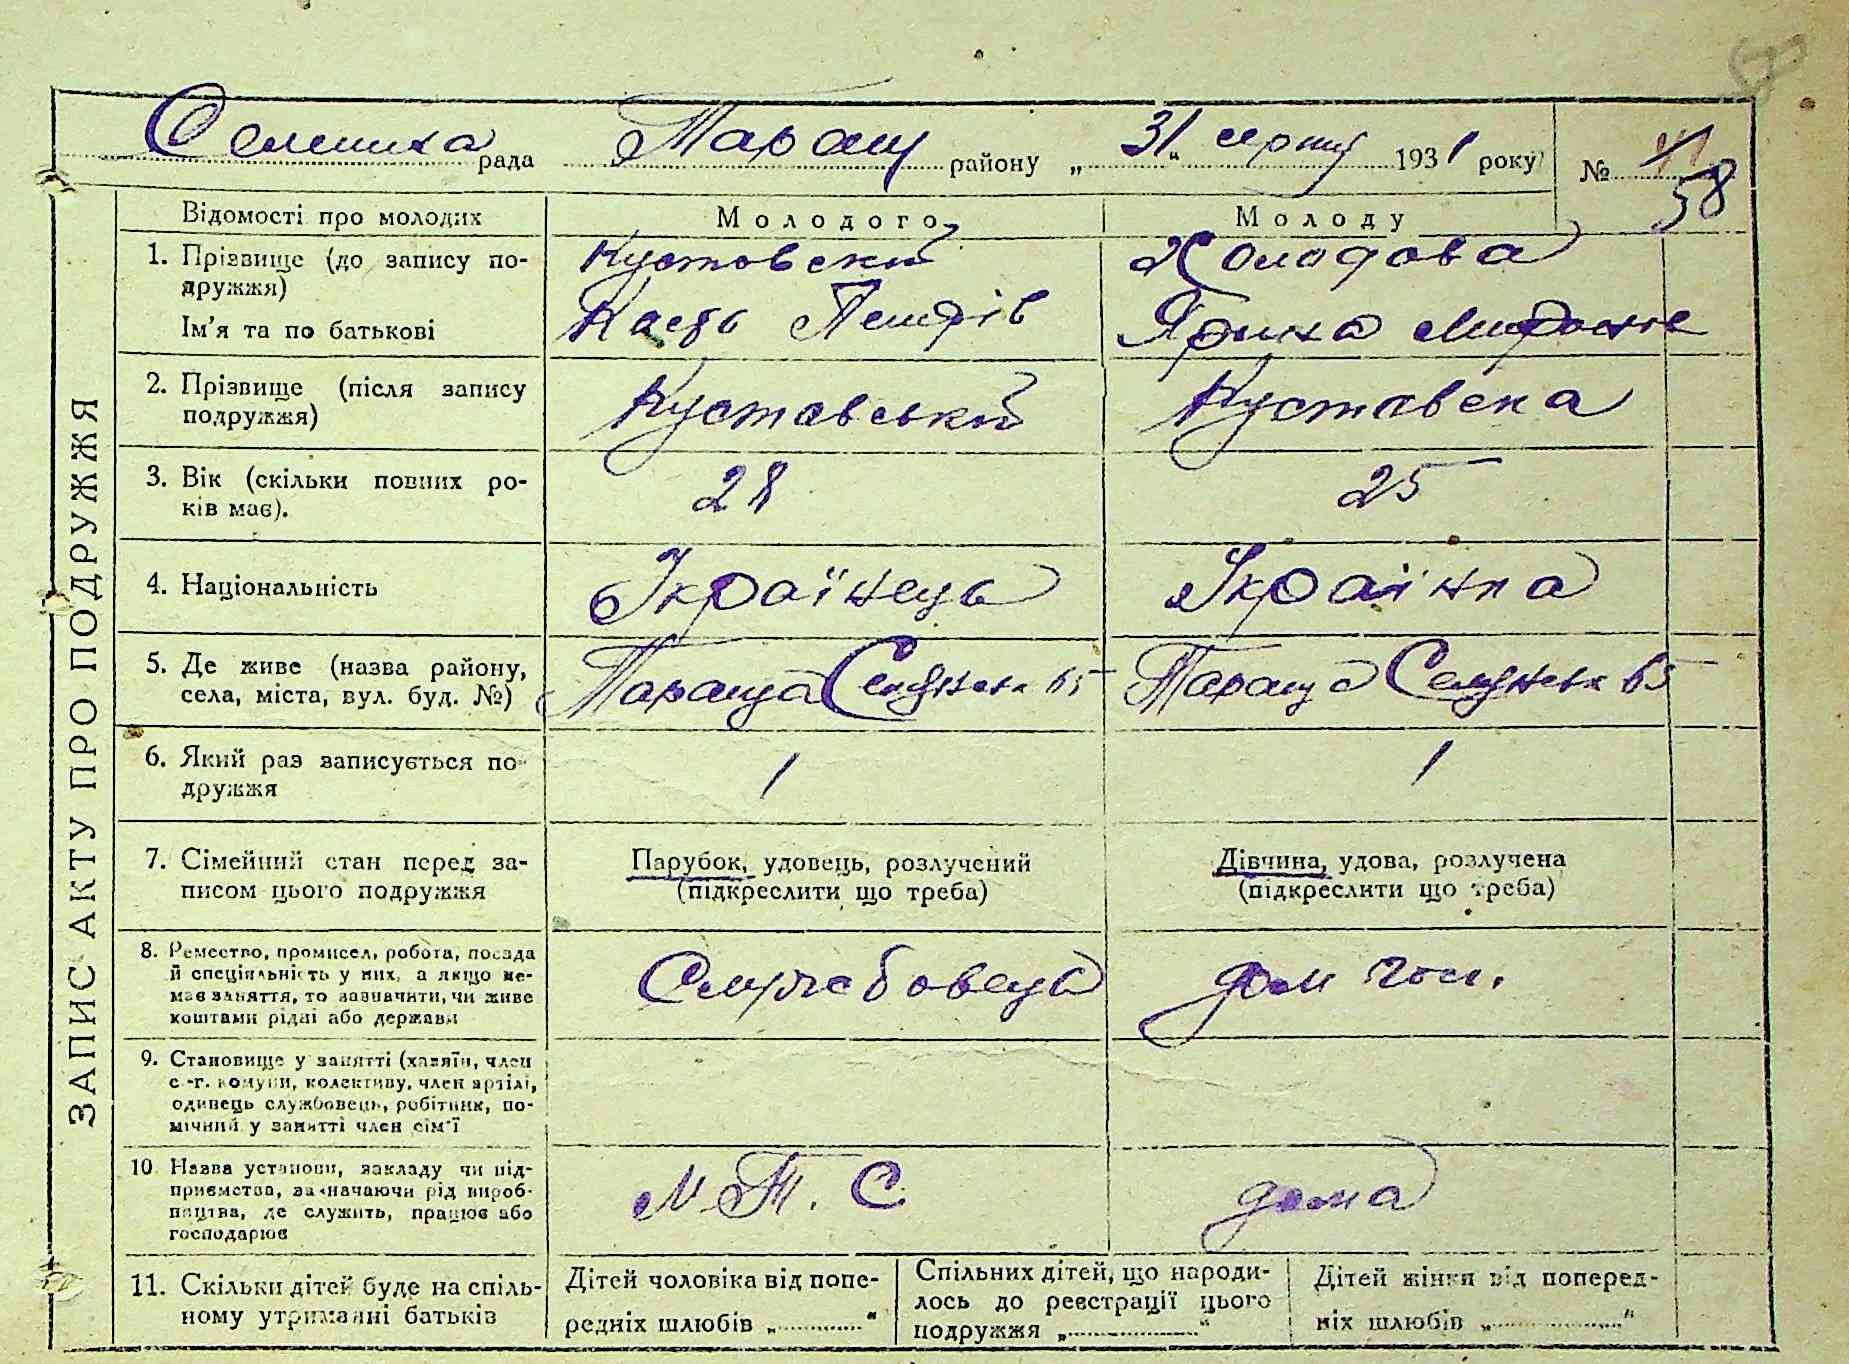 Селищна рада Таращ району „31" серпня 1931 року № 58
ЗАПИС АКТУ ПРО ПОДРУЖЖЯ
Відомості про молодих Молодого Молоду
1. Прізвище (до запису по-
дружжя)
Кустовский Холодова
Ім'я та по батькові
Кость Петрів Ярина
2. Прізвище (після запису
подружжя)
Куставський Куставска
3. Вік (скільки повних ро-
ків має).
28 25
4. Національність
Українець Українка
5. Де живе (назва району,
села, міста, вул. буд. №)
Тараща 65 Тараща 65
6. Який раз записується по-
дружжя
1 1
7. Сімейний стан перед за-
писом цього подружжя
Парубок, удовець, розлучений
(підкреслити що треба)
Дівчина, удова, розлучена
(підкреслити що треба)
8. Ремество, промисел, робота, посада
й спеціяльність у них, а якщо не-
має заняття, то зазначити, чи живе
коштами рідні або держави
Службовець дом гос.
9. Становище у занятті (хазяїн, член
с.-г. комуни, колективу, член артілі,
одинець службовець, робітник, по-
мічний у занятті член сім'ї
10. Назва установи, закладу чи під-
приємства, зазначаючи рід вироб-
ництва, де служить, працює або
господарює
М.Т.С дома
11. Скільки дітей буде на спіль-
ному утриманні батьків
Дітей чоловіка від попе-
редніх шлюбів „............"
Спільних дітей, що народи-
лось до реєстрації цього
подружжя „..................."
Дітей жінки від поперед-
ніх шлюбів „..................."